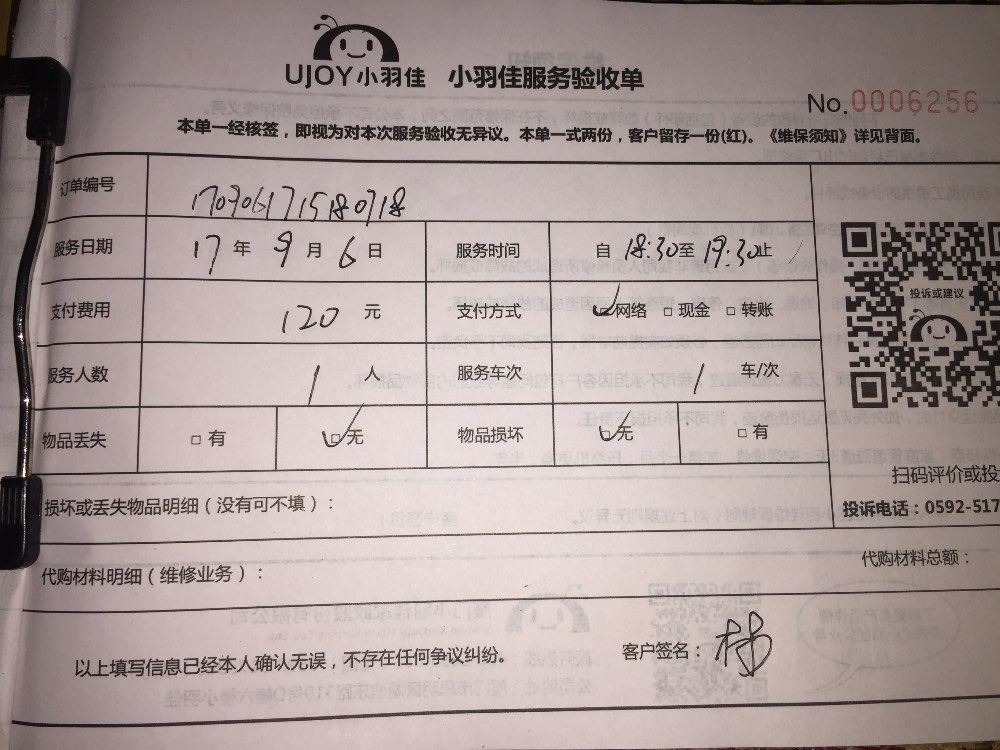 UJOY小羽佳 小羽佳服务验收单
No.0006256
本单一经核签，即视为对本次服务验收无异议。本单一式两份，客户留存一份(红)。《维保须知》详见背面。
订单编号 1709061715180718
服务日期 17 年 9 月 6 日 服务时间 自 18:30 至 19:30 止
支付费用 120 元 支付方式 ☑网络 □ 现金 □ 转账
服务人数 1 人 服务车次 1 车/次
物品丢失 □ 有 ☑无 物品损坏 ☑无 □ 有
投诉或建议
扫码评价或投
投诉电话：0592-517
损坏或丢失物品明细（没有可不填）：
代购材料明细（维修业务）：
代购材料总额：
以上填写信息已经本人确认无误，不存在任何争议纠纷。
客户签名：杨